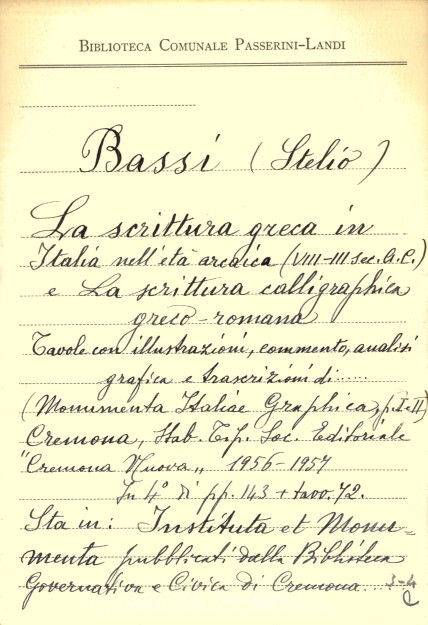 BIBLIOTECA COMUNALE PASSERINI-LANDI
Bassi (Stelio)
La scrittura greca in
Italia nell'età arcaica (VIII-III sec. A.C.)
e La scrittura calligraphica
greco-romana
Tavole con illustrazioni, commento, analisi
grafica e trascrizioni di......
(Monumenta Italiae Graphica, p. I-II)
Cremona, Stab. Tip. Soc. Editoriale
"Cremona Nuova„ 1956-1957
In 4° di pp. 143 + tavv. 72.
Sta in: Instituta et Monu=
menta pubblicati dalla Biblioteca
Governativa e Civica di Cremona... 3-4